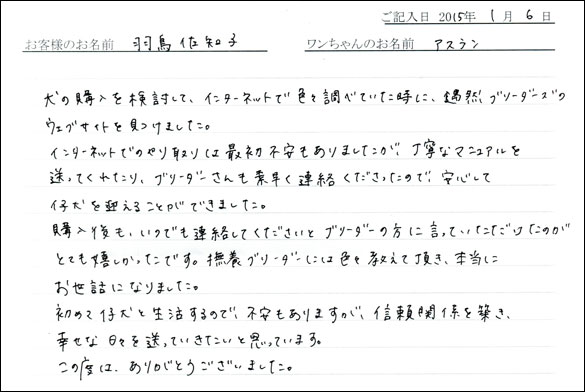 ご記入日 2015年 1月 6日
お客様のお名前 羽鳥 佐知子 ワンちゃんのお名前 アスラン
犬の購入を検討して、インターネットで色々調べていた時に、偶然ブリーダーズの
ウェブサイトを見つけました。
インターネットでのやり取りは最初不安もありましたが、丁寧なマニュアルを
送ってくれたり、ブリーダーさんも素早く連絡くださったので、安心して
仔犬を迎えることができました。
購入後も、いつでも連絡してくださいとブリーダーの方に言っていただけたのが
とても嬉しかったです。撫養ブリーダーには色々教えて頂き、本当に
お世話になりました。
初めて仔犬と生活するので、不安もありますが、信頼関係を築き、
幸せな日々を送っていきたいと思っています。
この度は、ありがとうございました。